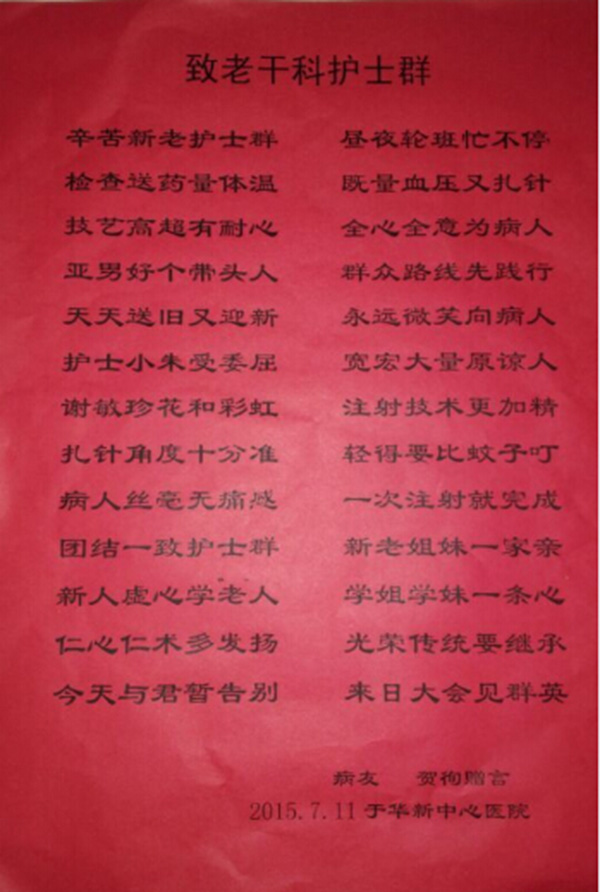 致老干科护士群
辛苦新老护士群 昼夜轮班忙不停
检查送药量体温 既量血压又扎针
技艺高超有耐心 全心全意为病人
亚男好个带头人 群众路线先践行
天天送旧又迎新 永远微笑向病人
护士小朱受委屈 宽宏大量原谅人
谢敏珍花和彩虹 注射技术更加精
扎针角度十分准 轻得要比蚊子叮
病人丝毫无痛感 一次注射就完成
团结一致护士群 新老姐妹一家亲
新人虚心学老人 学姐学妹一条心
仁心仁术多发扬 光荣传统要继承
今天与君暂告别 来日大会见群英
病友 贺徇赠言
2015.7.11于华新中心医院